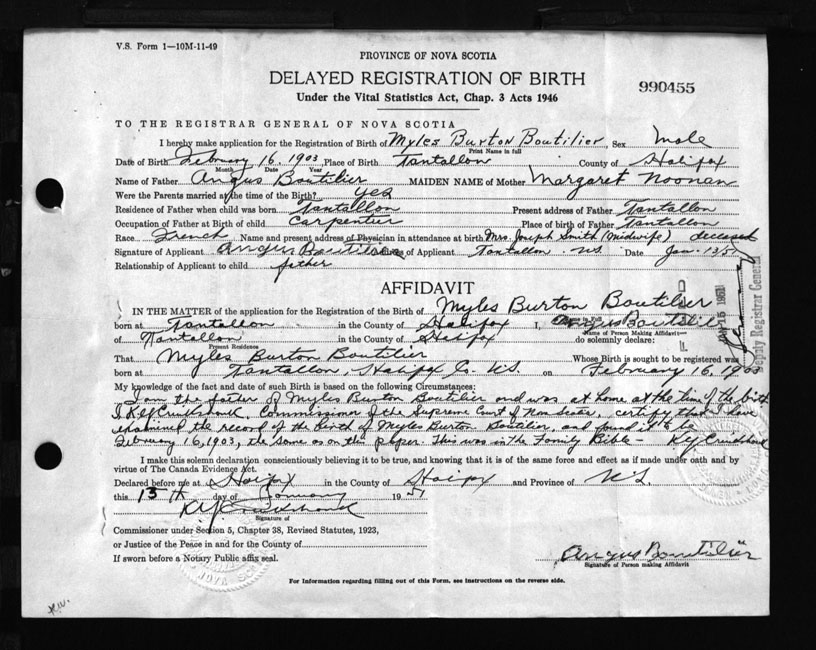 V.S. Form 1—10M-11-49
PROVINCE OF NOVA SCOTIA
DELAYED REGISTRATION OF BIRTH
990455
Under the Vital Statistics Act, Chap. 3 Acts 1946
TO THE REGISTRAR GENERAL OF NOVA SCOTIA
I hereby make application for the Registration of Birth of Myles Burton Boutilier Sex Male
Print Name in full
Date of Birth February 16, 1903 Place of Birth Tantallon County of Halifax
Month Date Year
Name of Father Angus Boutilier MAIDEN NAME of Mother Margaret Noonan
Were the Parents married at the time of the Birth? Yes
Residence of Father when child was born Tantallon Present address of Father Tantallon
Occupation of Father at Birth of child Carpentier Place of birth of Father Tantallon
Race French Name and present address of Physician in attendance at birth Mrs. Joseph Smith (Midwife) deceased
Signature of Applicant Angus Boutilier of Applicant Tantallon N.S. Date Jan
Relationship of Applicant to child father
AFFIDAVIT
IN THE MATTER of the application for the Registration of the Birth of Myles Burton Boutilier
born at Tantallon in the County of Halifax I, Angus Boutilier
Name of Person Making Affidavit
of Tantallon in the County of Halifax do solemnly declare:
Present Residence
That Myles Burton Boutilier Whose Birth is sought to be registered was
born at Tantallon, Halifax Co. N.S. on February 16, 1903
My knowledge of the fact and date of such Birth is based on the following Circumstances:
I am the father of Myles Burton Boutilier and was at home at the time of the birth
I, Cruikshank, Commissioner of the Supreme Court of Nova Scotia, certify that I have
examined the record of the birth of Myles Burton Boutilier, and found it to be
February 16, 1903, the same as on the paper. This was in the Family Bible - Cruikshank
I make this solemn declaration conscientiously believing it to be true, and knowing that it is of the same force and effect as if made under oath and by
virtue of The Canada Evidence Act.
Declared before me at Halifax in the County of Halifax and Province of N.S.
this 15th day of January 1951
Cruikshank
Signature of
Commissioner under Section 5, Chapter 38, Revised Statutes, 1923,
or Justice of the Peace in and for the County of
If sworn before a Notary Public affix seal.
Angus Boutilier
Signature of Person making Affidavit
For Information regarding filling out of this Form, see instructions on the reverse side.
15 1951
Deputy Registrar General
NOVA